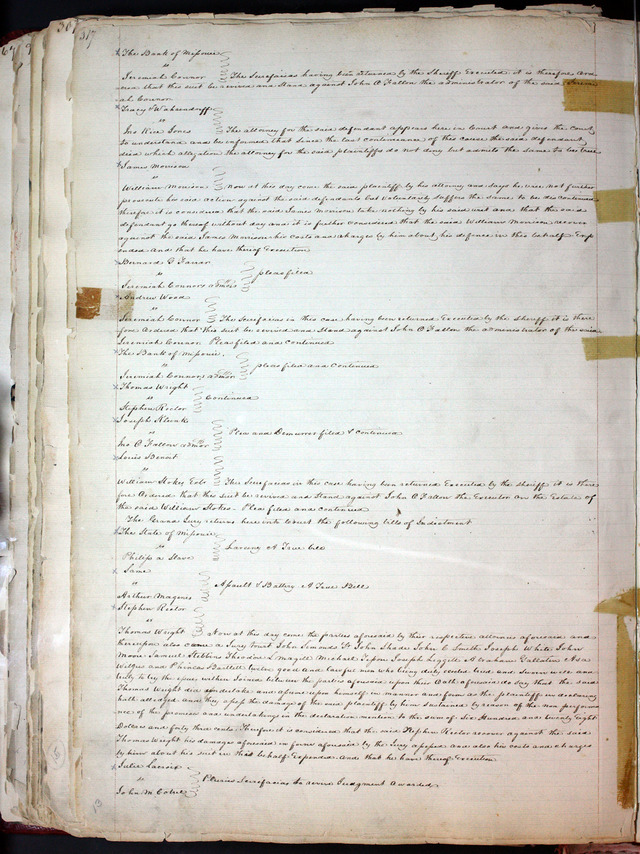 317
The Bank of Missouri
"
Jeremiah Connor The Scirefacias having been returned by the Sheriff Executed it is therefore ord
ered that this suit be revived and Stand against John O Fallon the administrator of the said Jerem
iah Connor
Tracy & Wahrendorff
"
Jno Rice Jones The attorney for the said defendant appears here in Court and gives the Court
to understand and be informed that since the last continuance of this cause the said defendant
died which allegation the attorney for the said plaintiffs do not deny but admits the same to be true
James Morrison
"
William Morrison Now at this day come the said plaintiff by his attorney and says he will not further
prosecute his said action against the said defendants but voluntarily suffers the same to be discontinued
therefore it is considered that the said James Morrison take nothing by his said writ and that the said
defendant go thereof without day and it is further considered that the said William Morrison recover
against the said James Morrison his costs and charges by him about his defence in this behalf Exp
ended And that he have thereof Execution
Bernard G Farrar
" pleas filed
Jeremiah Connors admors
Andrew Wood
"
Jeremiah Connor The Scirefacias in this case having been returned Executed by the sheriff it is there
fore Ordered that this suit be revived and Stand against John O Fallon the administrator of the said
Jeremiah Connor Plea filed and continued
The Bank of Missouri
" plea filed and Continued
Jeremiah Connors admor
Thomas Wright
" Continued
Stephen Rector
Joseph Klunk
" Plea and Demurrer filed & continued
Jno O Fallon admor
Louis Benoit
"
William Stokes Exts The Scirefacias in this case having been returned Executed by the sheriff it is there
fore Ordered that this suit be revived and Stand against John O Fallon the Executor on the Estate of
the said William Stokes. Plea filed and continued
The Grand Jury returns here into Court the following bills of Indictment
The State of Missouri
" Larceny A True bill
Philip a Slave
Same
" Assault & Battery A True Bill
Arthur Magenis
Stephen Rector
"
Thomas Wright Now at this day come the parties aforesaid by their respective attornies aforesaid and
thereupon also came a Jury to wit John Simonds Sr John Shade John C Smith Joseph White John
Moore Samuel Stebbins Theodore L Magill Michael Joseph Leggett Abraham Gallatin Asa
Wilgus and Phineas Bartlett twelve good and lawful men who being duly elected tried and Sworn well and
truly to try the issue within Joined between the parties aforesaid upon their Oath aforesaid do say that the said
Thomas Wright did undertake and assume upon himself in manner and form as the plaintiff in declaring
hath alledged and they assess the damage of the said plaintiff by him sustained by reason of the non performa
nce of the promises and undertakings in the declaration mention to the sum of Six Hundred and twenty Eight
Dollars and forty three Cents. Therefore it is considered that the said Stephen Rector recover against the said
Thomas Wright his damages aforesaid in form aforesaid by the Jury assessed and also his costs and charges
by him about his suit in this behalf Expended And that he have thereof Execution
Julie Lacroix
" Pluries Scirefacias to revive Judgment Awarded
John M